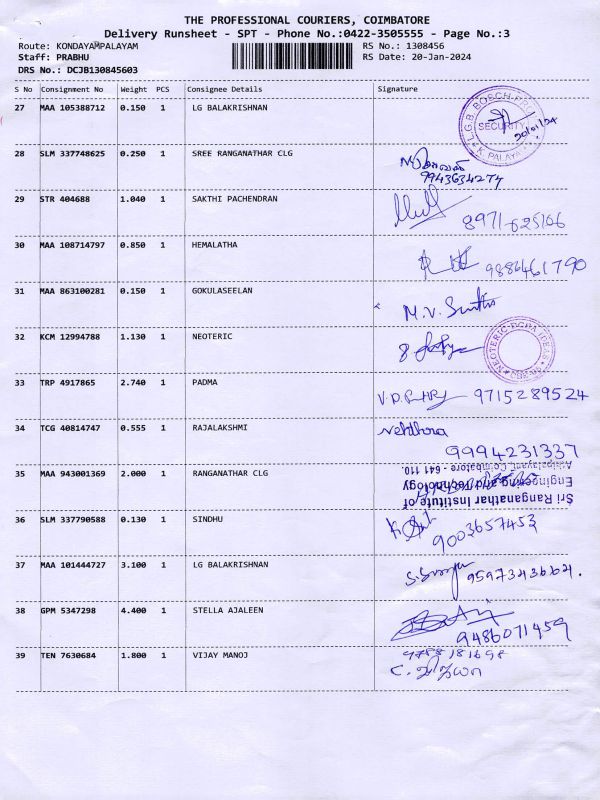 THE PROFESSIONAL COURIERS, COIMBATORE
Delivery Runsheet - SPT - Phone No.:0422-3505555 - Page No.:3
Route: KONDAYAMPALAYAM RS No.: 1308456
Staff: PRABHU RS Date: 20-Jan-2024
DRS No.: DCJB130845603
S No Consignment No Weight PCS Consignee Details Signature
27 MAA 105388712 0.150 1 LG BALAKRISHNAN
SECURITY
20/01/24
K. PALAYA
28 SLM 337748625 0.250 1 SREE RANGANATHAR CLG
9943634274
29 STR 404688 1.040 1 SAKTHI PACHENDRAN
8971625106
30 MAA 108714797 0.850 1 HEMALATHA
9886461790
31 MAA 863100281 0.150 1 GOKULASEELAN
M.V.
32 KCM 12994788 1.130 1 NEOTERIC
33 TRP 4917865 2.740 1 PADMA
9715289524
34 TCG 40814747 0.555 1 RAJALAKSHMI
9994231337
35 MAA 943001369 2.000 1 RANGANATHAR CLG
Sri Ranganathar Institute of
Engineering and Technology
Coimbatore - 641 110.
36 SLM 337790588 0.130 1 SINDHU
9003657453
37 MAA 101444727 3.100 1 LG BALAKRISHNAN
9597343664.
38 GPM 5347298 4.400 1 STELLA AJALEEN
9486071459
39 TEN 7630684 1.800 1 VIJAY MANOJ
9788181698